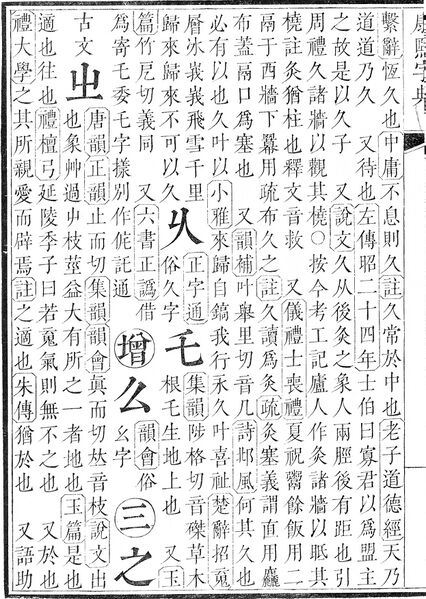 康熙字典
繫辭恆久也中庸不息則久註久常於中也老子道德經天乃
道道乃久 又待也左傳昭二十四年士伯曰寡君以爲盟主
之故是以久子 又說文久从後灸之象人兩脛後有距也引
周禮久諸牆以觀其橈○按今考工記廬人作灸諸牆以眂其
橈註灸猶柱也釋文音救 又儀禮士喪禮夏祝鬻餘飯用二
鬲于西牆下冪用疏布久之註久讀爲灸疏灸塞義謂直用麤
布蓋鬲口爲塞也 又韻補叶舉里切音几詩邶風何其久也
必有以也久叶以小雅來歸自鎬我行永久叶喜祉楚辭招䰟
層冰峩峩飛雪千里
歸來歸來不可以久
乆
正字通
俗久字
乇
集韻陟格切音磔草木
根乇生地上也 又玉
篇竹戹切義同 又六書正譌借
爲寄乇委乇字㨾別作侂託通
增
么
韻會俗
幺字
三
之
古文
㞢
唐韻正韻止而切集韻韻會眞而切𠀤音枝說文出
也象艸過屮枝莖益大有所之一者地也玉篇是也
適也往也禮檀弓延陵季子曰若䰟氣則無不之也 又於也
禮大學之其所親愛而辟焉註之適也朱傳猶於也 又語助